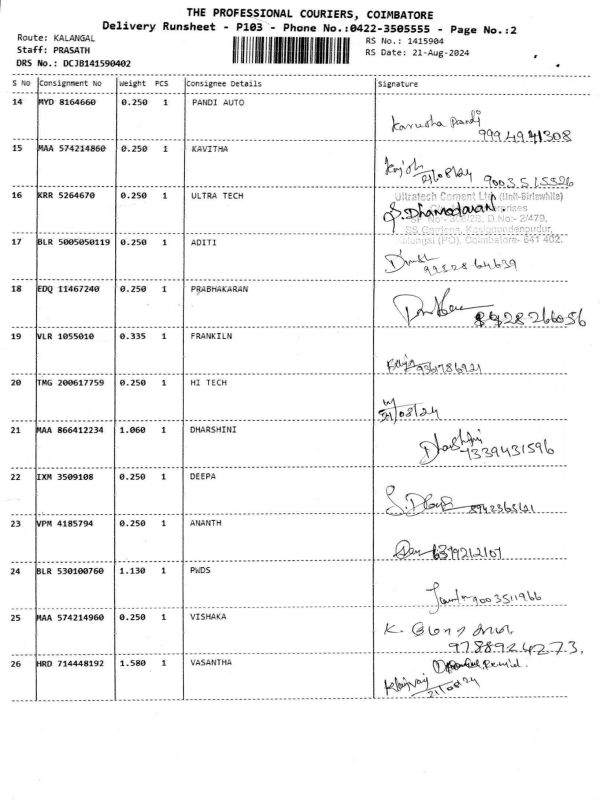 THE PROFESSIONAL COURIERS, COIMBATORE
Delivery Runsheet - P103 - Phone No.:0422-3505555 - Page No.:2
Route: KALANGAL
RS No.: 1415904
Staff: PRASATH
RS Date: 21-Aug-2024
DRS No.: DCJB141590402
S No Consignment No Weight PCS Consignee Details Signature
14 MYD 8164660 0.250 1 PANDI AUTO
9994941308
15 MAA 574214860 0.250 1 KAVITHA
21/08/24 9003515526
16 KRR 5264670 0.250 1 ULTRA TECH
Ultratech Cement Ltd (Unit-Birlawhite)
S. Dhamodaran
D.No:- 2/479,
17 BLR 5005050119 0.250 1 ADITI
(PO), Coimbatore- 641 402.
9252864639
18 EDQ 11467240 0.250 1 PRABHAKARAN
28266056
19 VLR 1055010 0.335 1 FRANKILN
9367786921
20 TMG 200617759 0.250 1 HI TECH
21/08/24
21 MAA 866412234 1.060 1 DHARSHINI
Dharshini
7339431596
22 IXM 3509108 0.250 1 DEEPA
23 VPM 4185794 0.250 1 ANANTH
24 BLR 530100760 1.130 1 PWDS
9003511966
25 MAA 574214960 0.250 1 VISHAKA
9788924273.
26 HRD 714448192 1.580 1 VASANTHA
21/08/24